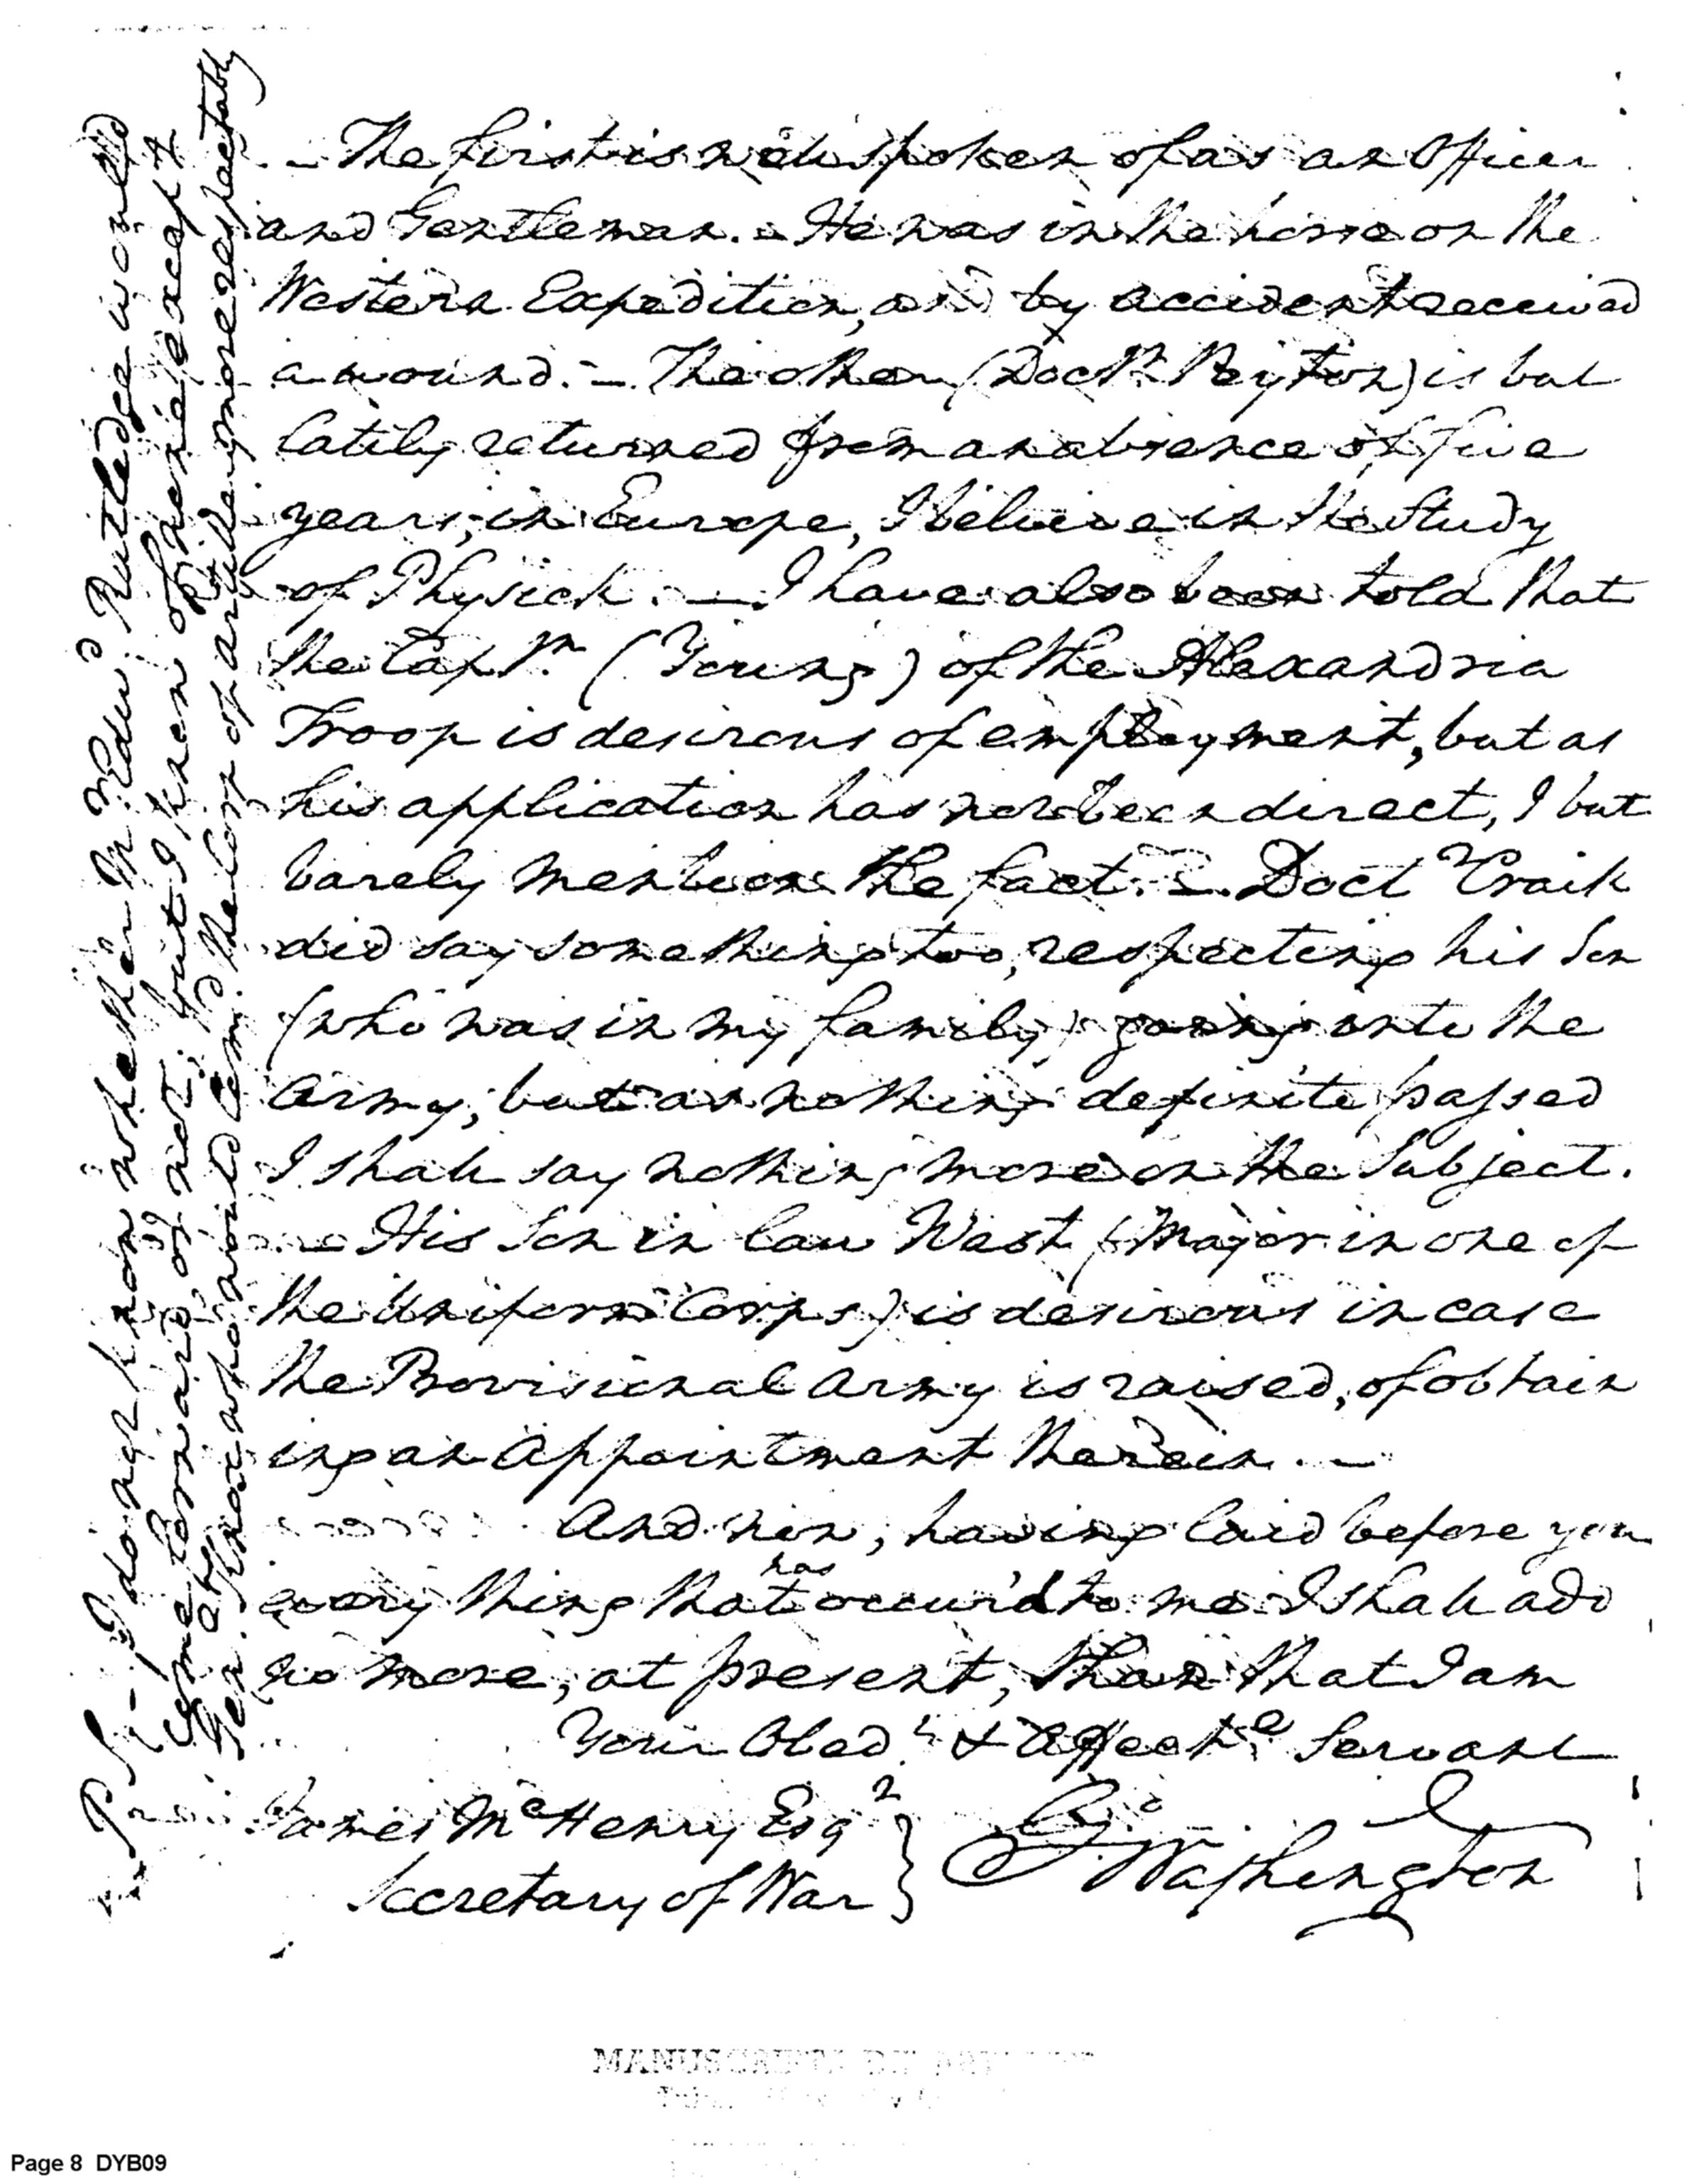 – The first is well spoken of as an Officer
and Gentleman. – He was in the horse on the
Western Expedition, and by accident received
a wound. – The other (Doctr. Peyton) is but
lately returned from an absence of five
years, in Europe, I believe in the Study
of Physick. – I have also been told that
the Captn. (Young) of the Alexandria
Troop is desirous of employment, but as
his application has not been direct, I but
barely mention the fact. – Doctr Craik
did say something too, respecting his Son
(who was in my family) going into the
Army; but as nothing definite passed
I shall say nothing more on the Subject.
– His Son in law West (Major in one of
the Uniform Corps) is desirous in case
the Provisional Army is raised, of obtain
ing an Appointment therein. –
And now, having laid before you
every thing that has occur'd to me I shall add
no more, at present, than that I am
Your Obedt. & Affecte. Servant
Go: Washington
James McHenry Esqr
Secretary of War
PS – I do not know whether Mr Edwd Rutledge would
come forward or not; but I know of none (except
Genl. Knox who would comd. the Corps of artillery more respectably
MANUSCRIPTS
Page 8 DYB09